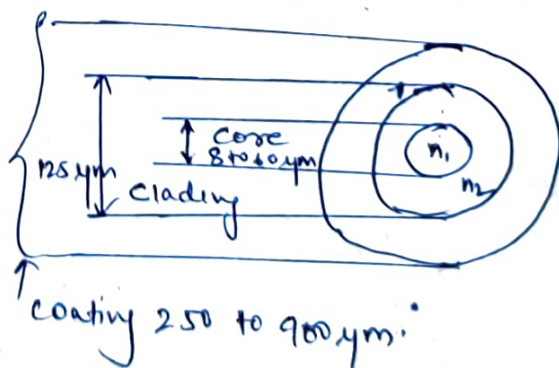 core
8 to 10 μm
125 μm
Clading
n₁
n₂
Coating 250 to 900 μm.